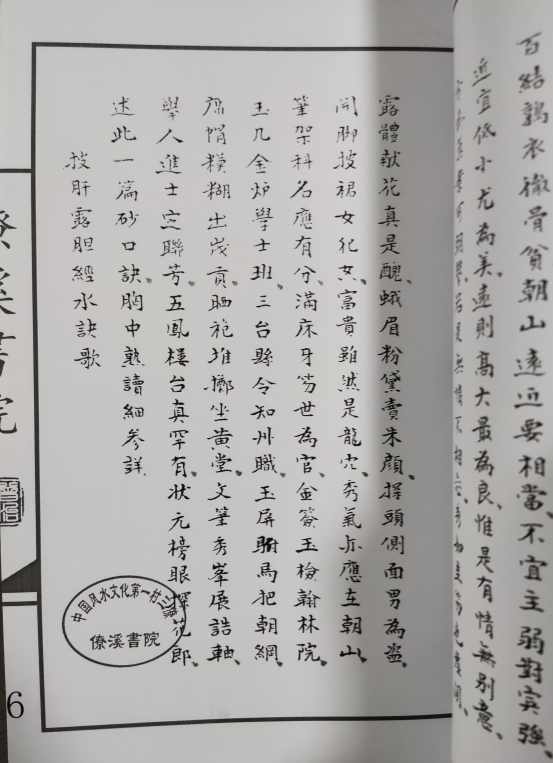 百結鶉衣徹骨貧朝山遠近要相當、不宜主弱對賓強、
近宜低小尤為美遠則高大最為良、惟是有情無別意、
露體献花真是醜、蛾眉粉黛賣朱顏、探頭側面男為盜、
開脚披裙女犯奸、富貴雖然是龍穴、秀氣亦應在朝山、
筆架科名應有分、滿床牙笏世為官、金簽玉檢翰林院、
玉几金炉學士班、三台縣令知州職、玉屏駙馬把朝綱、
席帽模糊出歲貢、晒袍堆擲坐黄堂、文筆秀峯展誥軸、
舉人進士定聯芳、五鳳楼台真罕有、状元榜眼探花郎、
述此一篇砂口訣、胸中熟讀細參詳
披肝露胆經水訣歌
僚溪書院
中国风水文化第一村
僚溪書院
6